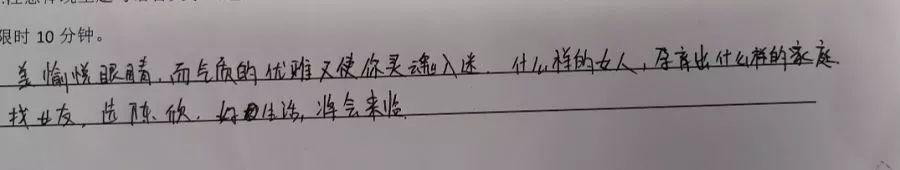 限时 10 分钟。
美愉悦眼睛,而气质的优雅又使你灵魂入迷. 什么样的女人,孕育出什么样的家庭.
找女友,选陈欣.好生活,将会来临.